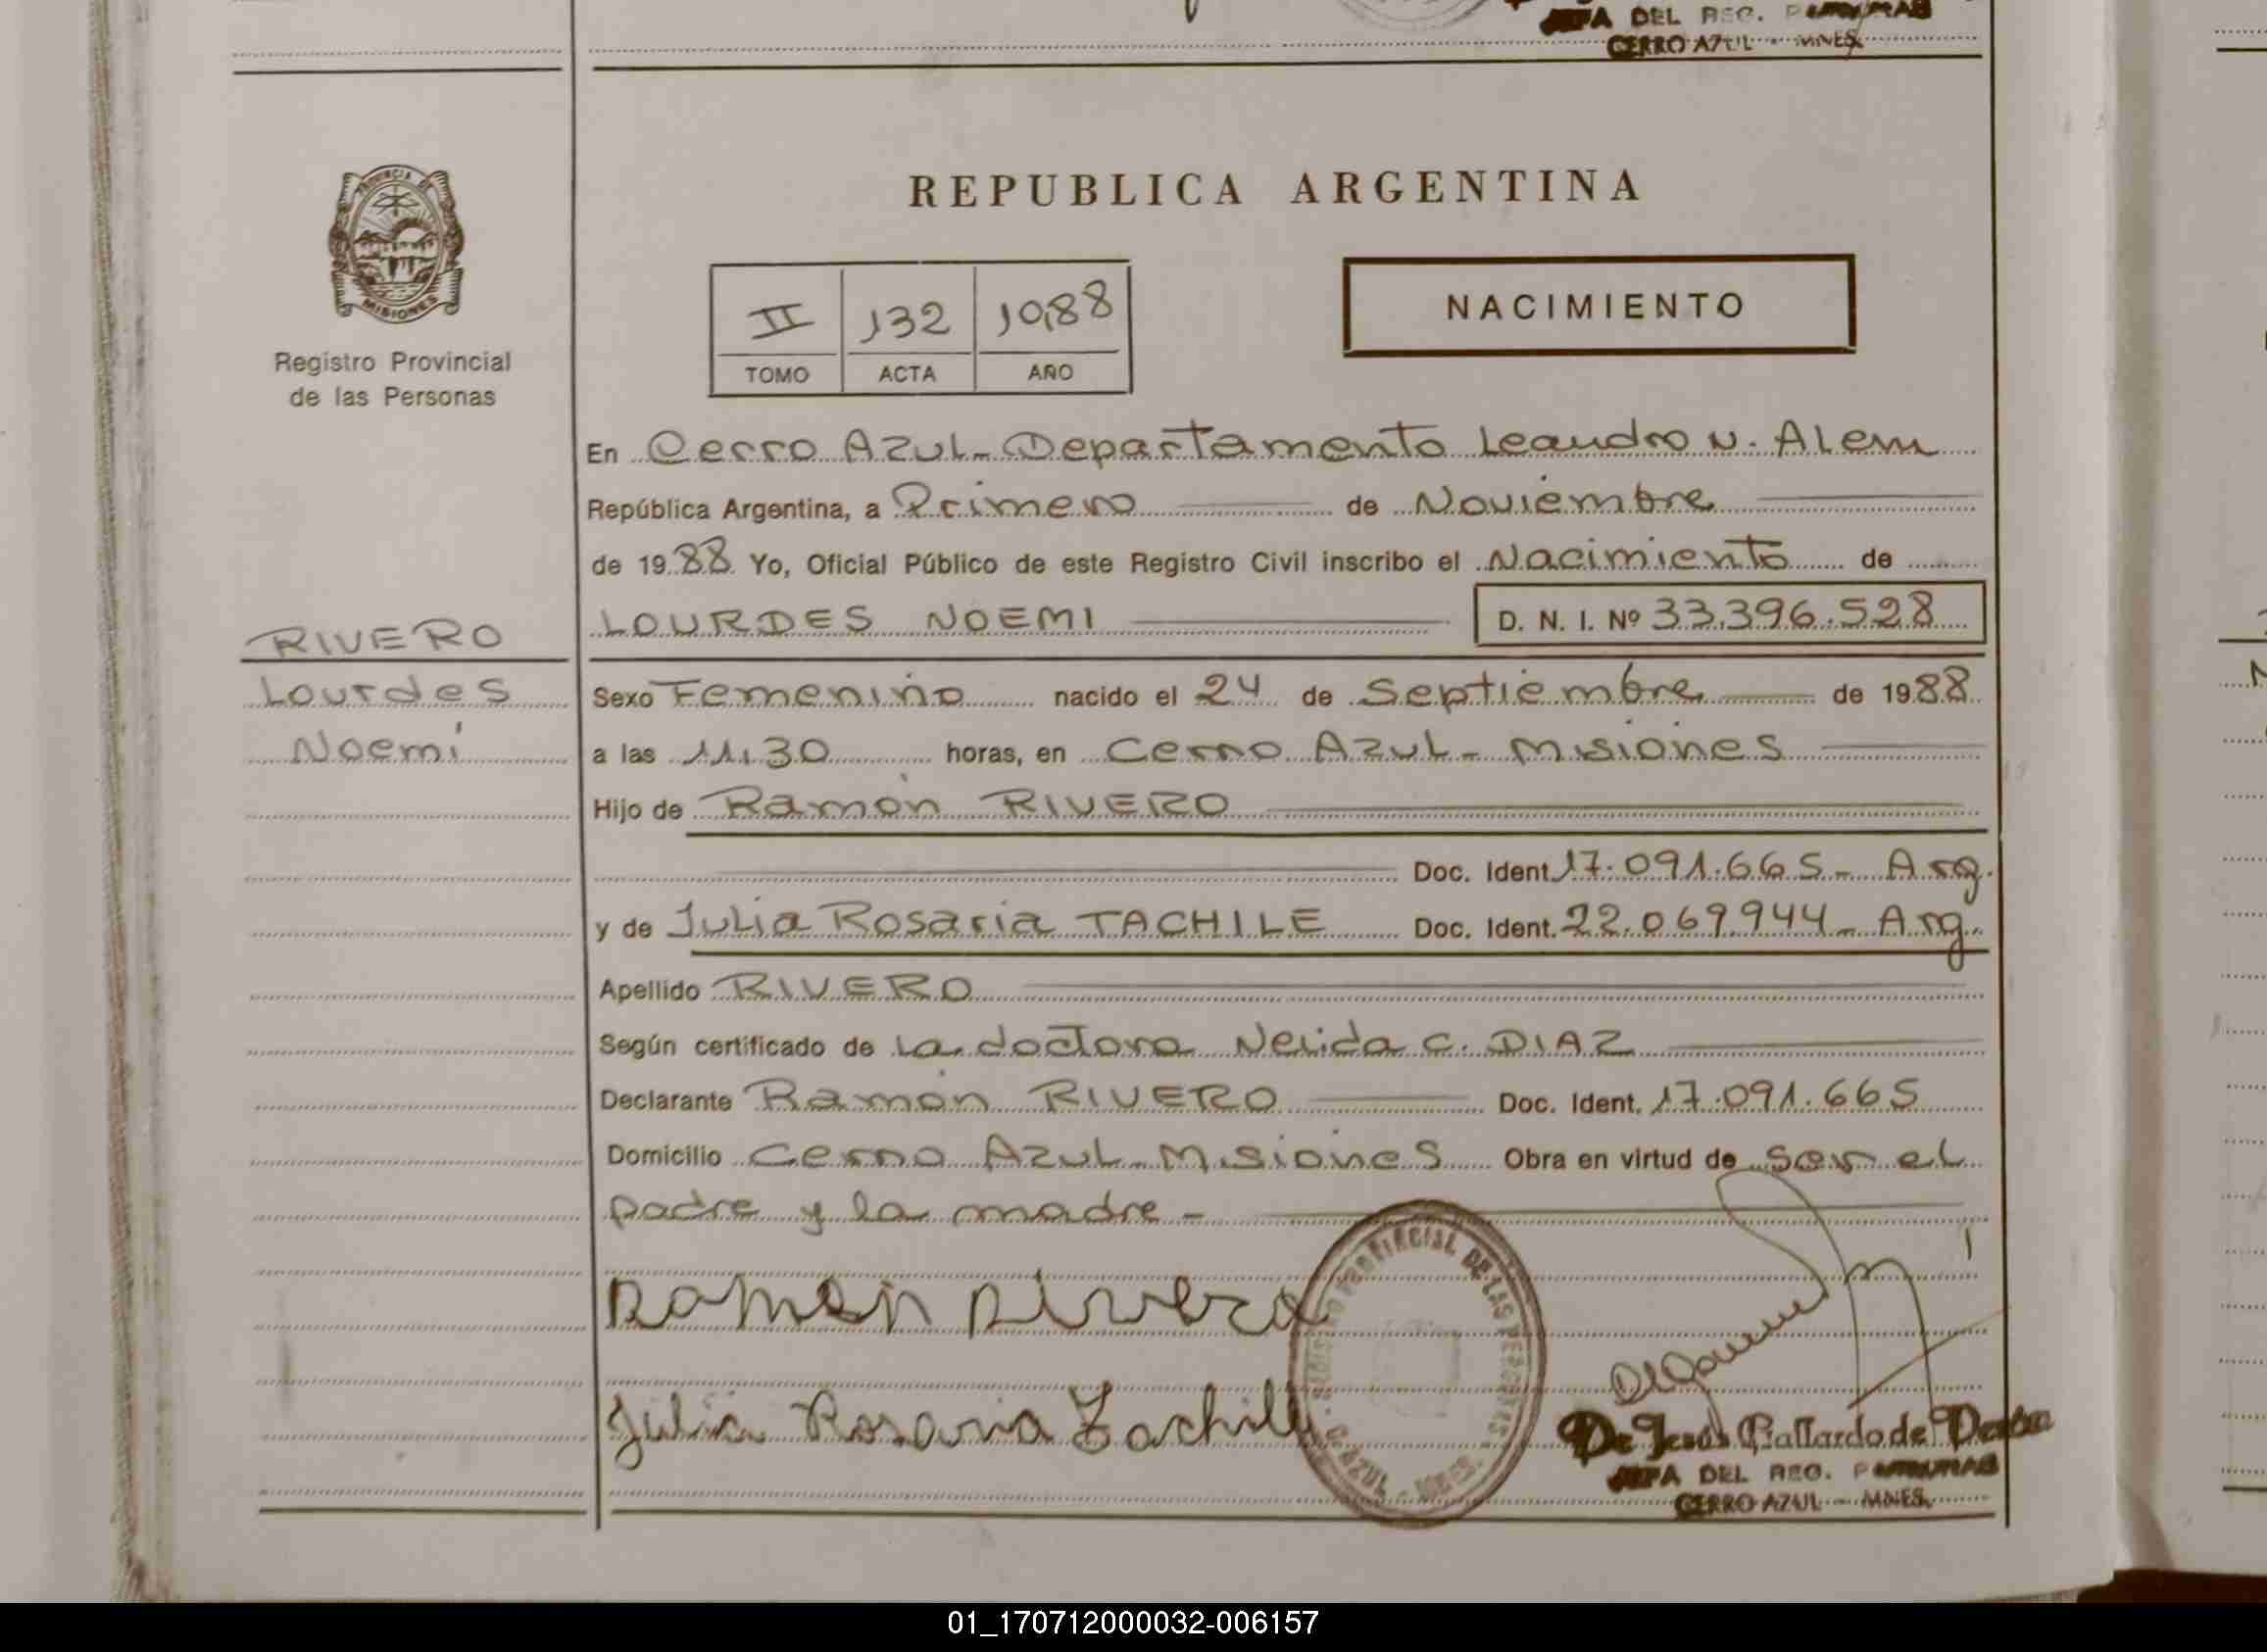 JEFA DEL REG.
CERRO AZUL - MNES
PROVINCIA DE
MISIONES
Registro Provincial
de las Personas
REPUBLICA ARGENTINA
II 132 1988
TOMO ACTA AÑO
NACIMIENTO
En Cerro Azul - Departamento Leandro N. Alem
República Argentina, a Primero de Noviembre
de 1988 Yo, Oficial Público de este Registro Civil inscribo el Nacimiento de
RIVERO
LOURDES NOEMI D. N. I. Nº 33.396.528
Lourdes
Sexo Femenino nacido el 24 de Septiembre de 1988
Noemí
a las 11,30 horas, en Cerro Azul - Misiones
Hijo de Ramón RIVERO
Doc. Ident 17.091.665 - Arg.
y de Julia Rosaria TACHILE Doc. Ident. 22.069.944 - Arg.
Apellido RIVERO
Según certificado de la doctora Nelida C. DIAZ
Declarante Ramón RIVERO Doc. Ident. 17.091.665
Domicilio Cerro Azul - Misiones Obra en virtud de ser el
padre y la madre -
Ramon Rivero
Julia Rosaria Tachile
REGISTRO PROVINCIAL DE LAS PERSONAS
C. AZUL - MNES.
De Jesús Gallardo de
JEFA DEL REG.
CERRO AZUL - MNES.
01_170712000032-006157